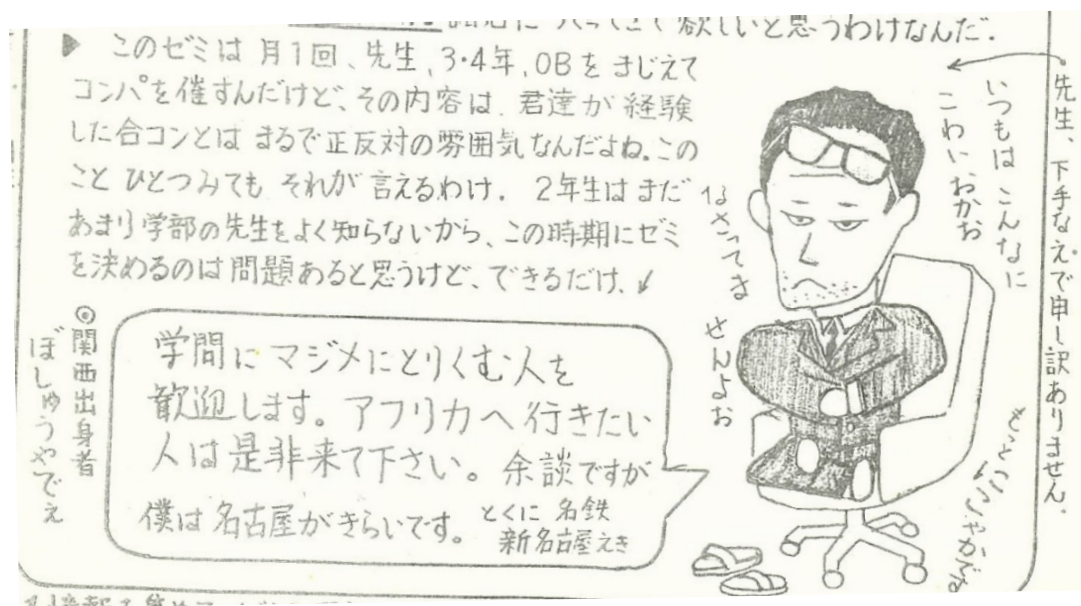 入ってきて欲しいと思うわけなんだ.
▶ このゼミは月1回、先生、3・4年、OBをまじえて
コンパを催すんだけど、その内容は、君達が経験
した合コンとは まるで正反対の雰囲気なんだよね。この
こと ひとつみても それが言えるわけ. 2年生はまだ
あまり学部の先生をよく知らないから、この時期にゼミ
を決めるのは問題あると思うけど、できるだけ、↙
◎関西出身者
ぼしゅうやでぇ
学問にマジメにとりくむ人を
歓迎します。アフリカへ行きたい
人は是非来て下さい。余談ですが
僕は名古屋がきらいです。とくに 名鉄
新名古屋えき
先生、下手なえで申し訳ありません.
いつもは こんなに
こわい おかお
なさってま
せんよお
もっと にこやかです